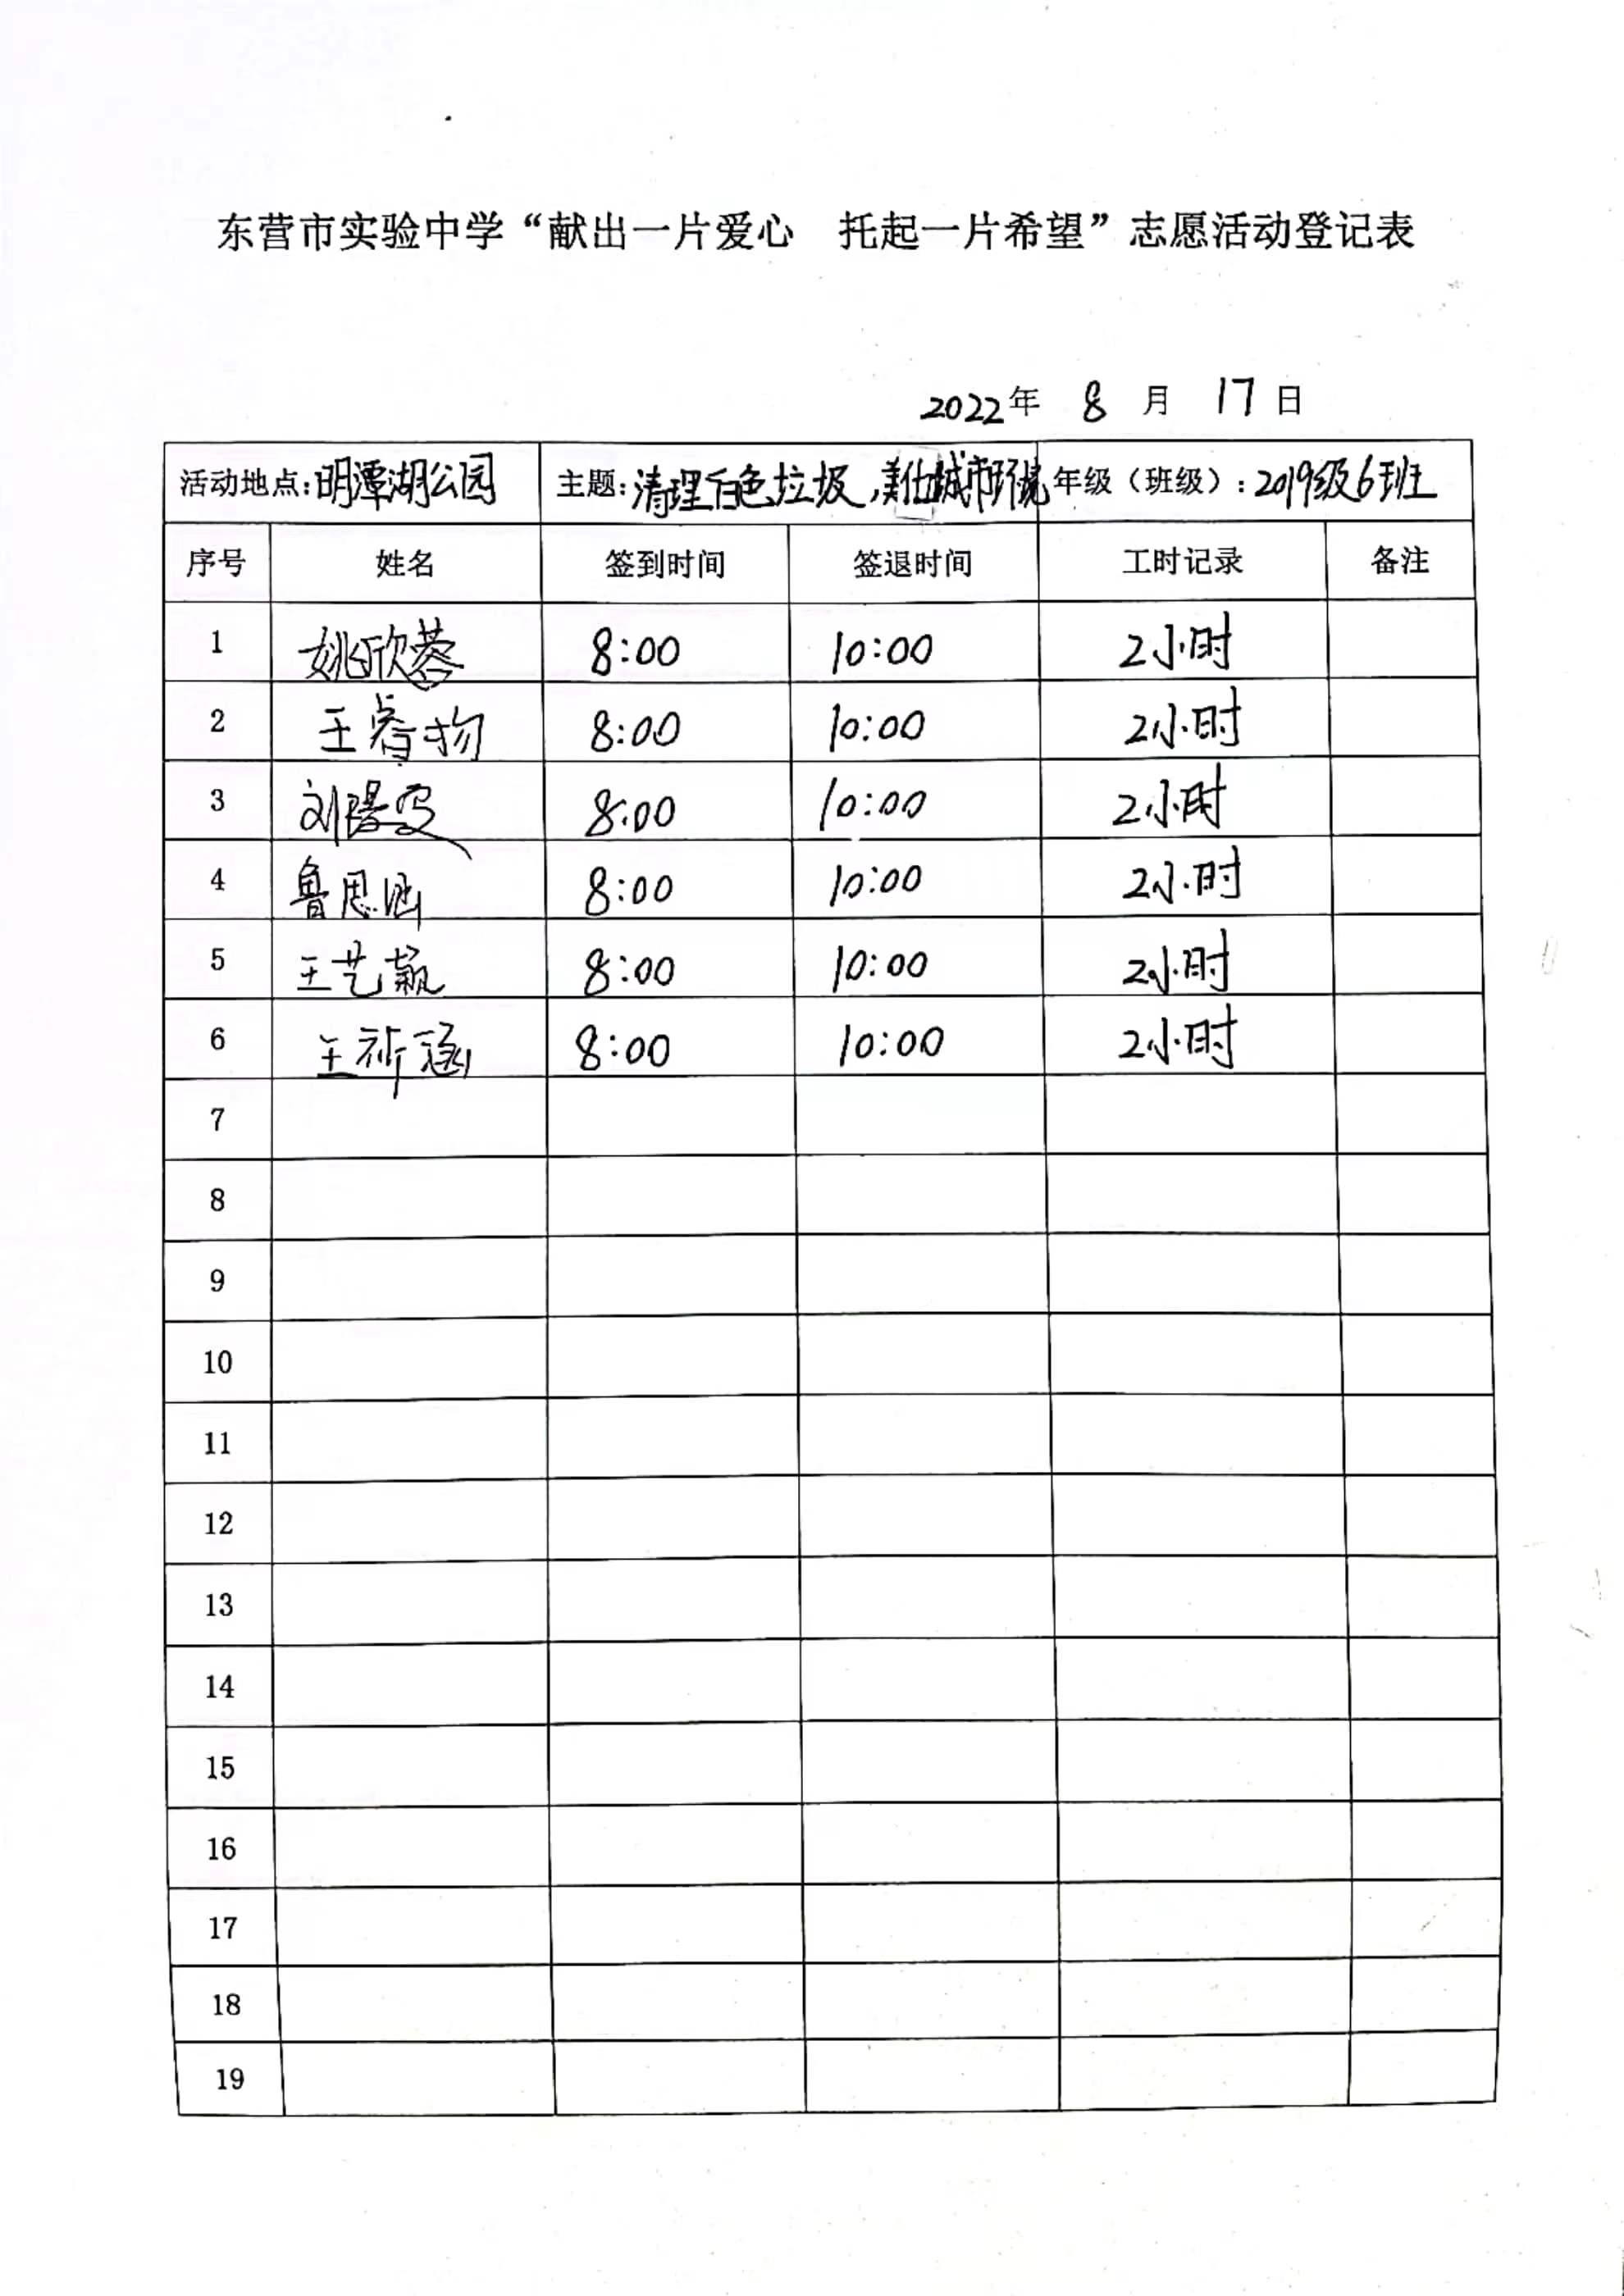 东营市实验中学“献出一片爱心 托起一片希望”志愿活动登记表
2022年 8 月 17 日
活动地点:明潭湖公园 主题:清理白色垃圾,美化城市环境 年级（班级）:2019级6班
序号 姓名 签到时间 签退时间 工时记录 备注
1 姚欣蓉 8:00 10:00 2小时
2 王睿扬 8:00 10:00 2小时
3 刘 8:00 10:00 2小时
4 鲁思涵 8:00 10:00 2小时
5 王艺颖 8:00 10:00 2小时
6 王祈涵 8:00 10:00 2小时
7
8
9
10
11
12
13
14
15
16
17
18
19